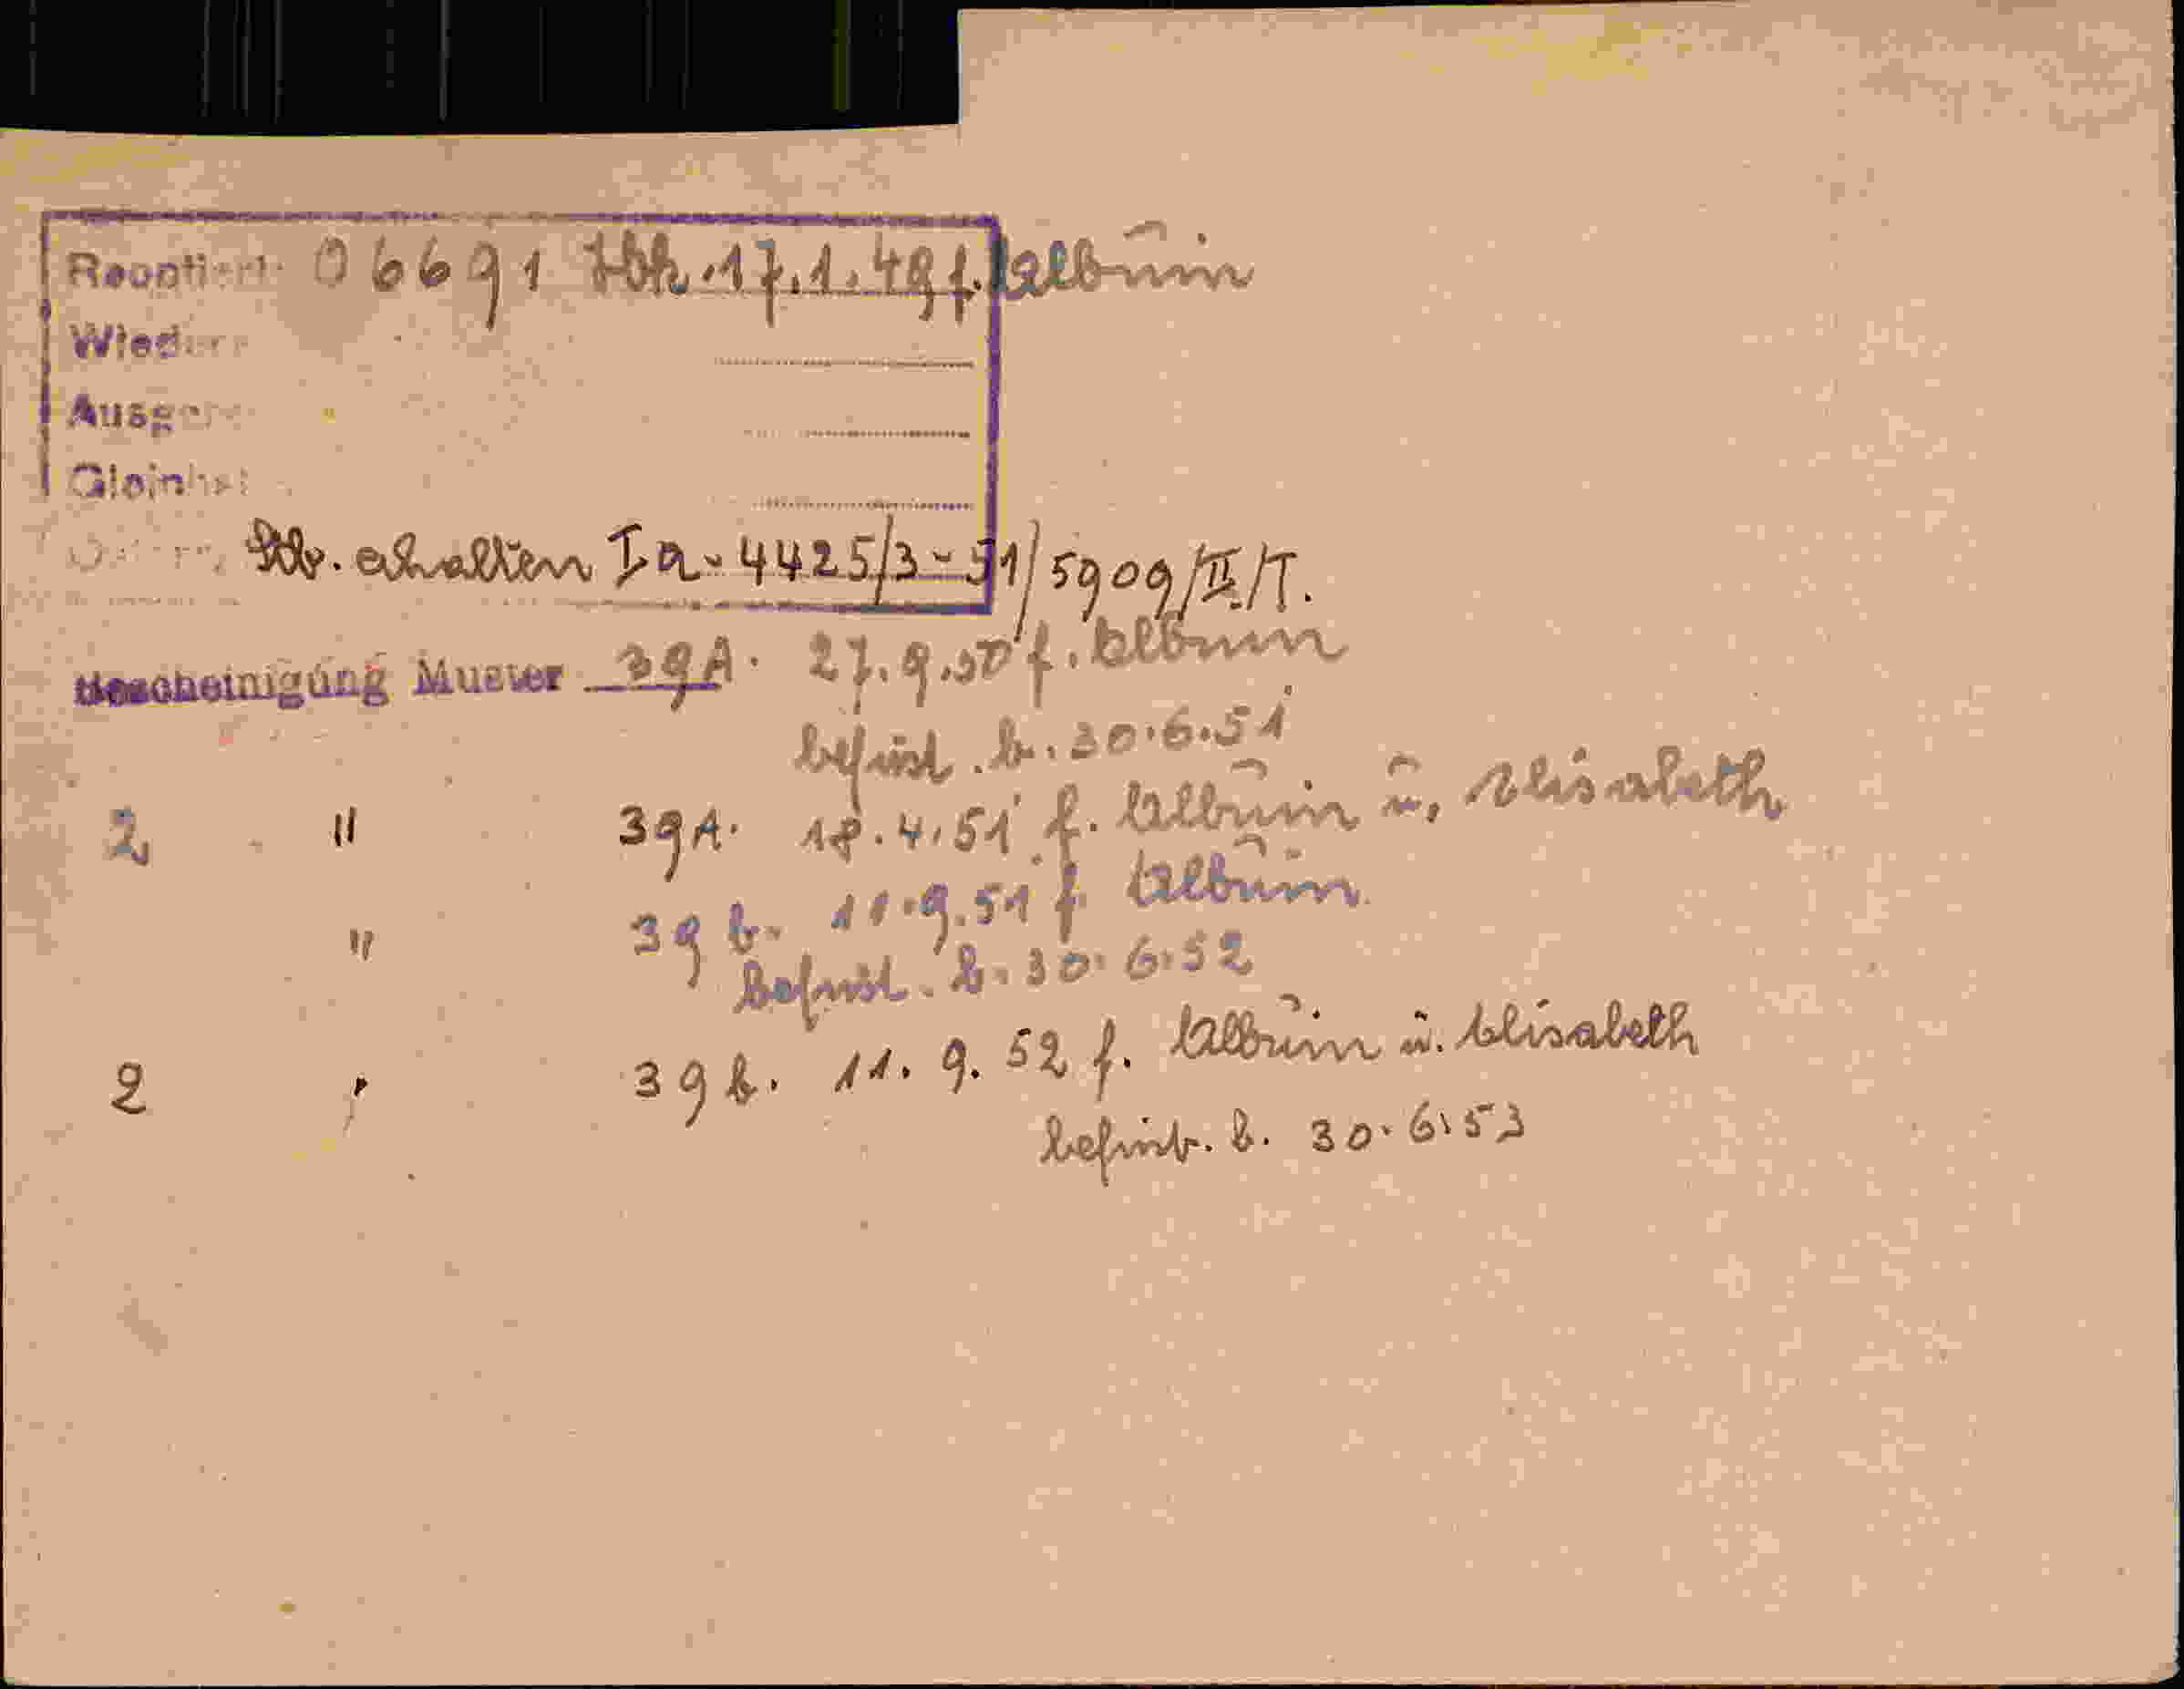 06691 Hbk. 17.1.49 f. Album
Stb. erhalten Ia-4425/3-51/5909/II/T.
Bescheinigung Muster 39A. 27.9.50 f. Album
befrist. b. 30.6.51
2 " 39A. 18.4.51 f. Album u. Elisabeth
" 39b. 11.9.51 f. Album
Befrist. b. 30.6.52
2 " 39b. 11.9.52 f. Album u. Elisabeth
befrist. b. 30.6.53